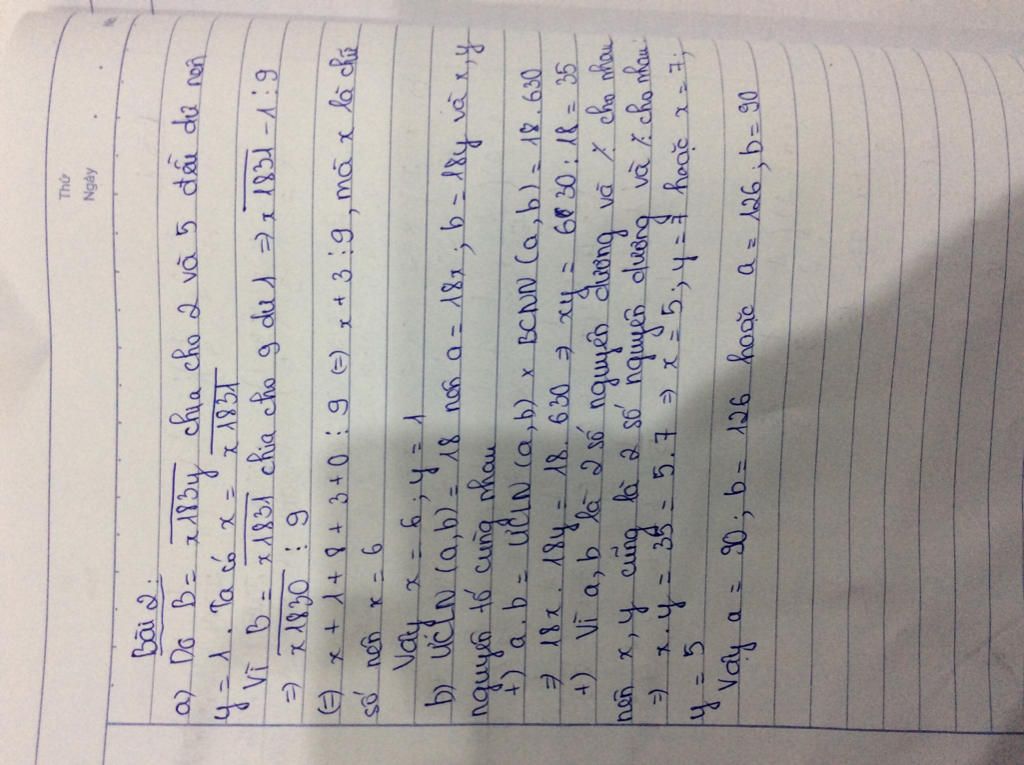 Thứ
Ngày
Bài 2:
a) Do B = x183y chia cho 2 và 5 đều dư nên
y = 1. Ta có x = x1831
Vì B = x1831 chia cho 9 dư 1 => x1831 - 1 ⋮ 9
=> x1830 ⋮ 9
(=) x + 1 + 8 + 3 + 0 ⋮ 9 (=) x + 3 ⋮ 9, mà x là chữ
số nên x = 6
Vậy x = 6; y = 1
b) ƯCLN (a,b) = 18 nên a = 18x; b = 18y và x,y
nguyên tố cùng nhau
+) a.b = ƯCLN (a,b) x BCNN (a,b) = 18.630
=> 18x. 18y = 18. 630 => xy = 630 : 18 = 35
+) Vì a, b là 2 số nguyên dương và ⁒ cho nhau
nên x, y cũng là 2 số nguyên dương và ⁒ cho nhau.
=> x.y = 35 = 5.7 => x = 5; y = 7 hoặc x = 7;
y = 5
Vậy a = 90; b = 126 hoặc a = 126; b = 90